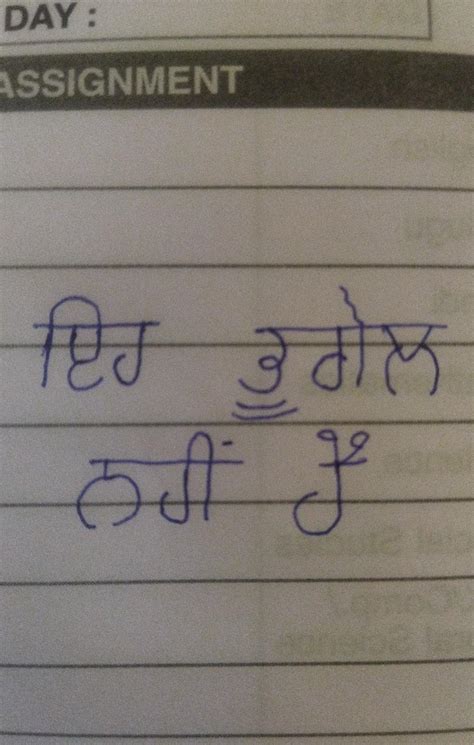 DAY :
ASSIGNMENT
ਇਹ ਭੂਗੋਲ
ਨਹੀਂ ਹੈ